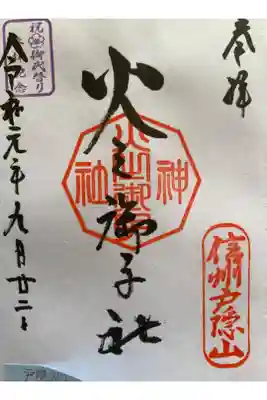 奉拝
信州戸隠山
火之御子社
神
火之御子
社
令和元年九月廿二日
祝 御代替り
記念
戸隠